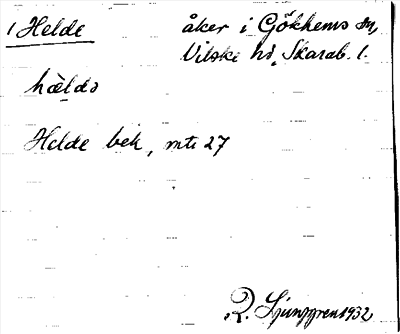 1 Helde åker i Gökhems sn,
Vilske hd, Skarab. l.
hælda
Helde bek, mt 27
R. Ljunggren 1932